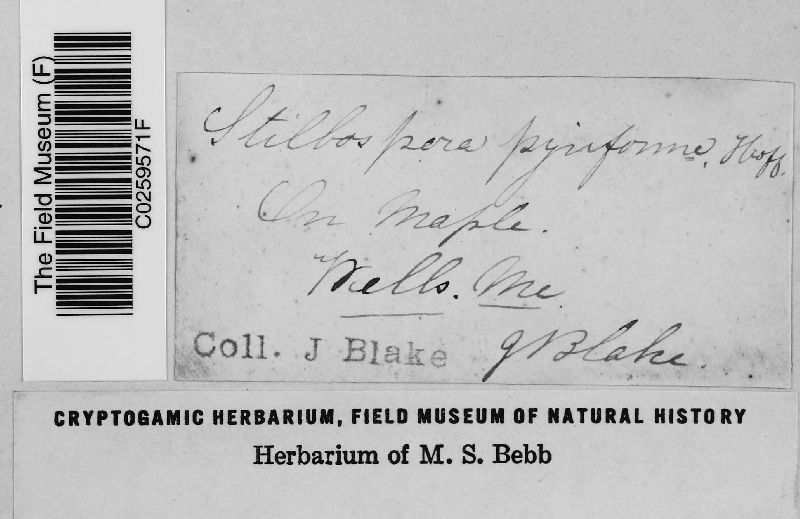 The Field Museum (F)
C0259571F
Stilbospora pyriforme, Hoff.
On Maple.
Wells. Me
Coll. J Blake
J Blake.
CRYPTOGAMIC HERBARIUM, FIELD MUSEUM OF NATURAL HISTORY
Herbarium of M. S. Bebb